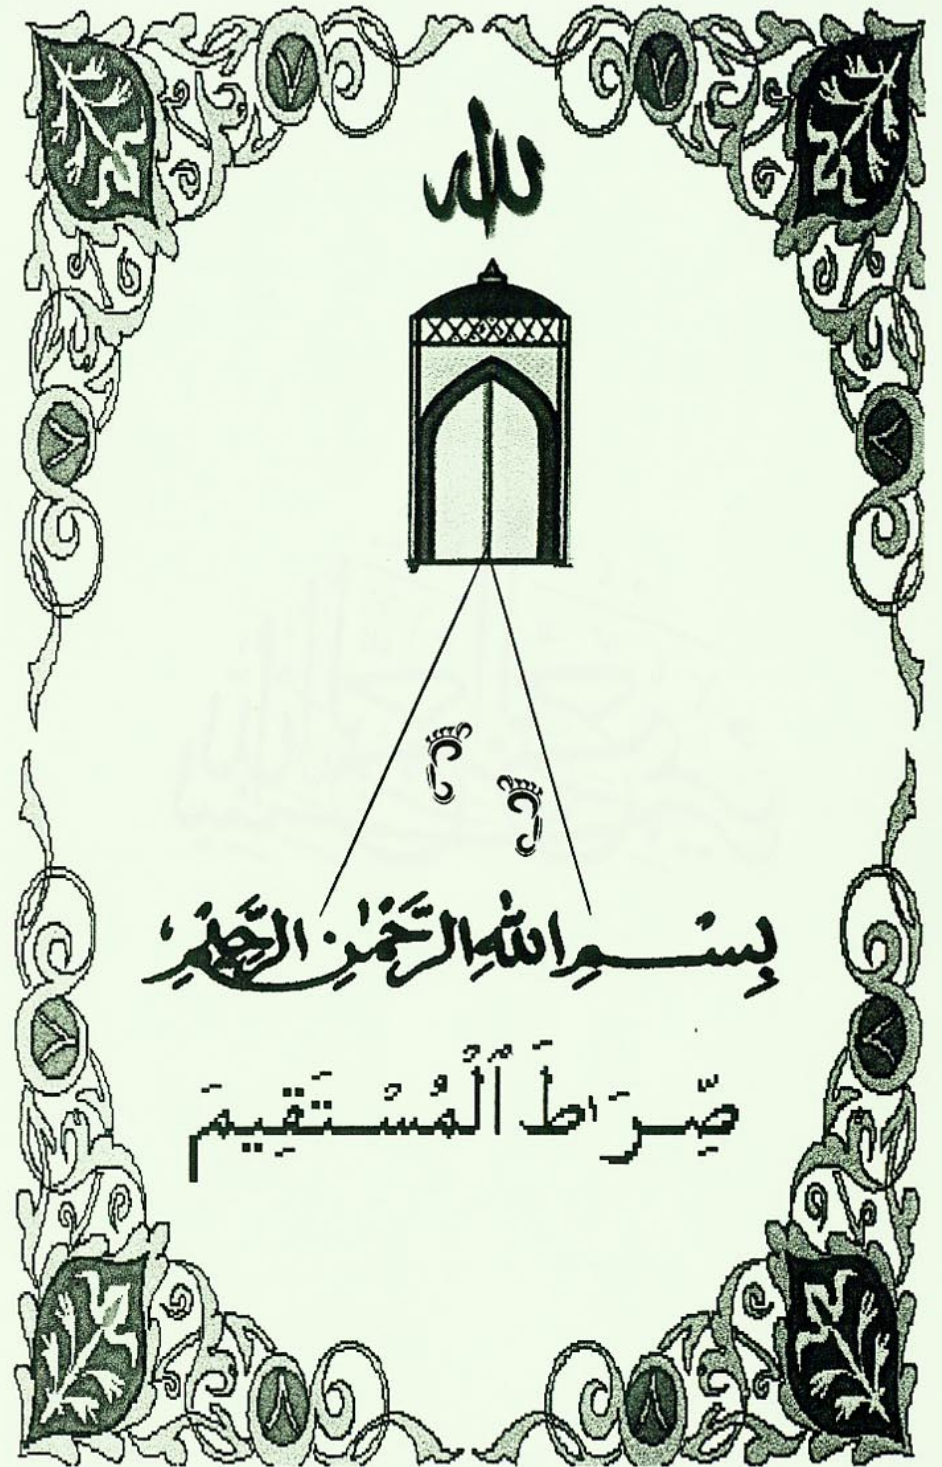 الله
بِسْمِ اللّٰهِ الرَّحْمٰنِ الرَّحِيْمِ
صِّرَاطَ ٱلْمُسْتَقِيمَ